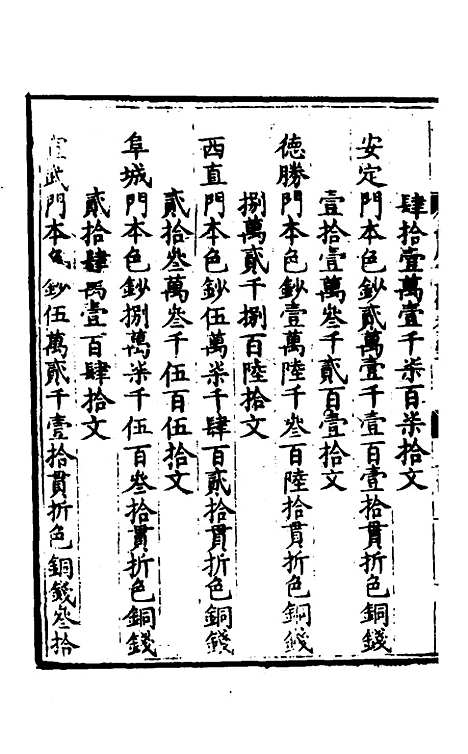 肆拾壹萬壹千柒百柒拾文
安定門本色鈔貳萬壹千壹百壹拾貫折色銅錢
壹拾壹萬叁千貳百壹拾文
德勝門本色鈔壹萬陸千叁百陸拾貫折色銅錢
捌萬貳千捌百陸拾文
西直門本色鈔伍萬柒千肆百貳拾貫折色銅錢
貳拾叁萬叁千伍百伍拾文
阜城門本色鈔捌萬柒千伍百叁拾貫折色銅錢
貳拾肆萬壹百肆拾文
宣武門本色鈔伍萬貳千壹拾貫折色銅錢叁拾